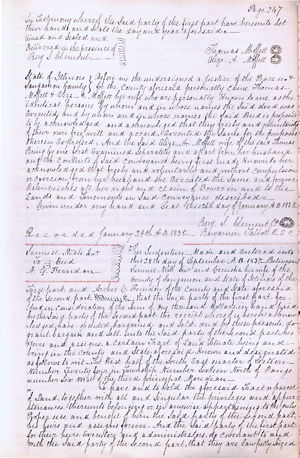 Page 347
In Testimony whereof the Said party of the first part have hereunto set
their hands and Seals the day and year aforesaid
Signed and Sealed and
Delivered in the presence of
Thomas Moffett
Eliza A. Moffett
State of Illinois Before me the undersigned a Justice of the Peace in
Sangamon County for the County aforesaid personally Came Thomas
Moffett & Eliza A. Moffett his wife who are personally Known to me as the
identical persons By whom and in whose names the Said deed was
Executed and by whom and in whose names the Said Deed is proposed
to be acknowledged and acknowledged that they freely and voluntarily
of their own free will and accord Executed the Same for the purposes
therein Expressed. And the Said Eliza A. Moffett wife of the said Thomas
being by me first Examined Separately and apart from her husband
and the Contents of Said Conveyance being first made Known to her
acknowledged that freely and voluntarily and without Compulsion
or coercion from her husband She Executed the Same and forever
Relinquishes all her right and claim of Dower in and to the
Lands and Tenements in Said Conveyance described
Given under my hand and Seal this day of January A.D. 1838
Recorded January 29th A.D. 1838. Benjamin Talbott R.S.C.
This Indenture Made and entered into
this 28th day of September A.D. 1837 Between
Samuel Hale and his wife of the
County of Sangamon and State of Illinois of the
First part and of the County and State aforesaid
of the Second part Witnesseth, That the Said party of the first part for
and in Consideration of the Sum of Hundred Dollars in hand paid
by the Said party of the Second part the receipt whereof is hereby acknow
ledged have granted bargained and Sold and by these presents do
grant bargain and Sell unto the Said party of the Second part his
heirs and assigns a certain Tract of Land Situate lying and
being in the County and State aforesaid Known and designated
as follows to wit The West half of the South East quarter of Section
Number Twenty four in Township Number Sixteen North of Range
number Six West of the third principal Meridian
To have and to hold the aforesaid Tract or parcel
of Land together with all and Singular the privileges and appur
tenances thereunto belonging or in anywise appertaining to the only
proper use and benefit of him the Said party of the Second part
his heirs and assigns forever. And the Said party of the first part
for their heirs Executors and administrators do covenant to and
with the Said party of the Second part, that they are lawfully Seized